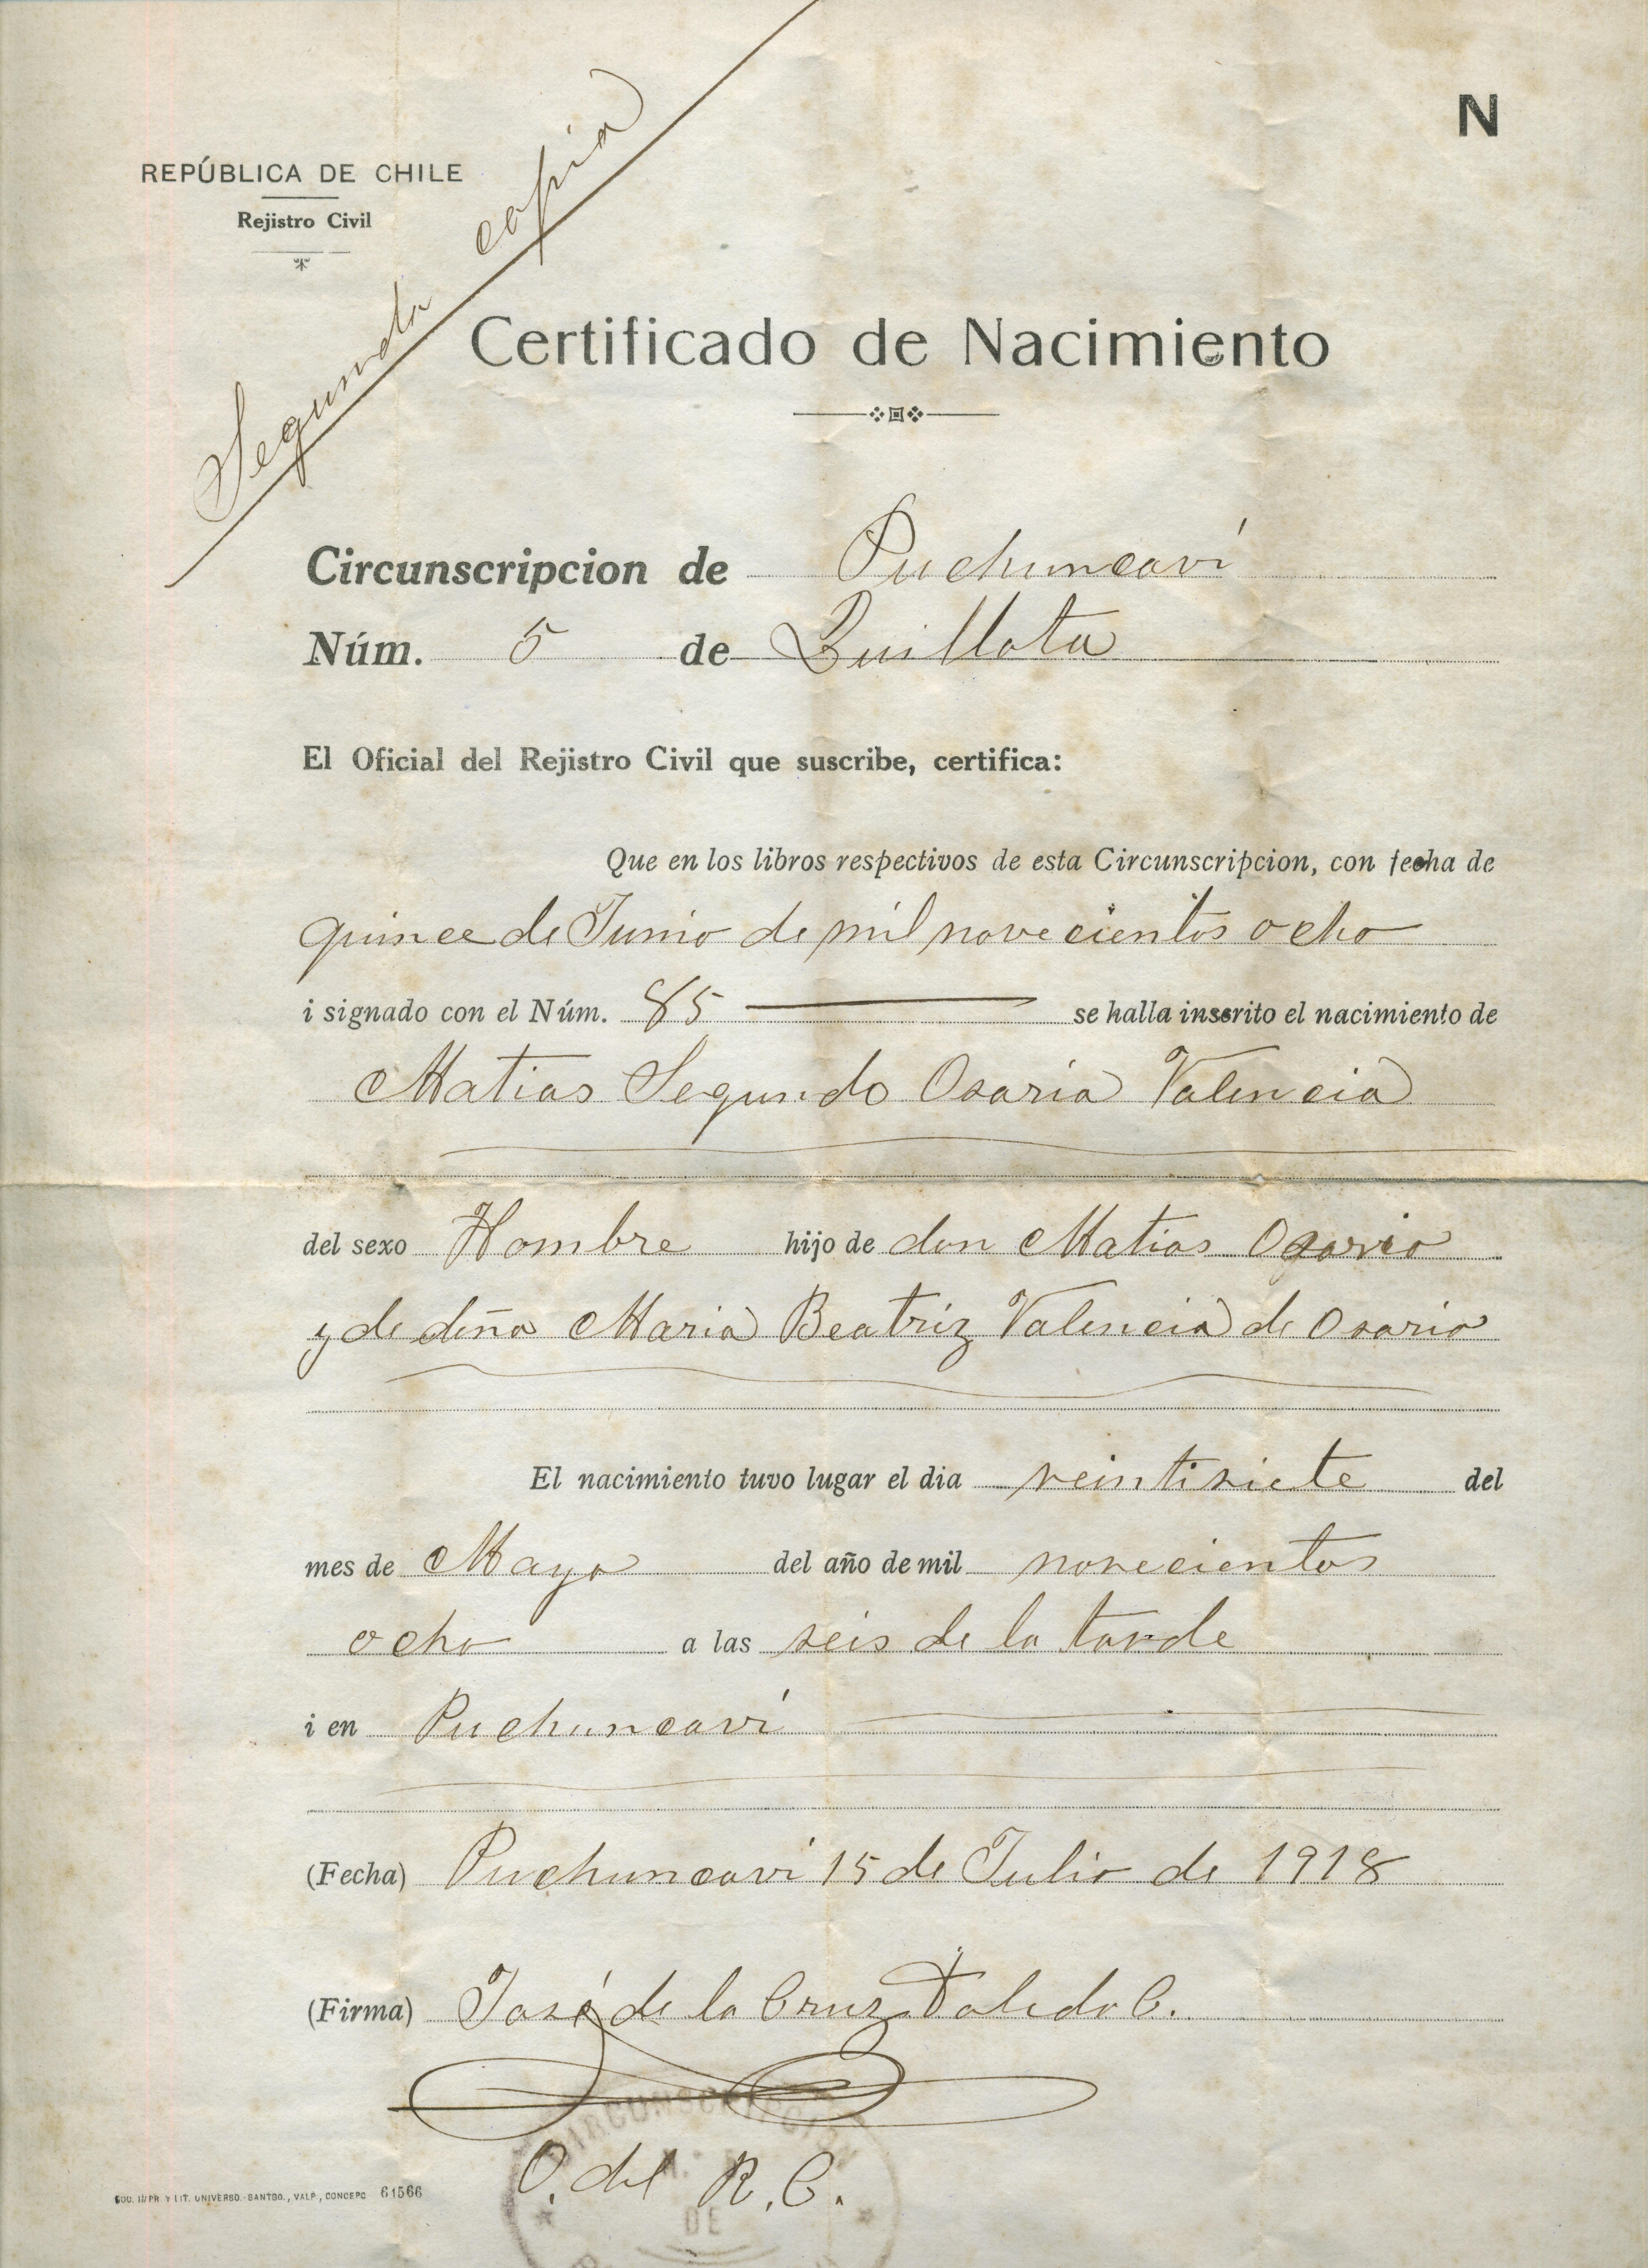 N
REPÚBLICA DE CHILE
Rejistro Civil
Segunda copia
Certificado de Nacimiento
Circunscripcion de Puchuncaví
Núm. 5 de Quillota
El Oficial del Rejistro Civil que suscribe, certifica:
Que en los libros respectivos de esta Circunscripcion, con fecha de
quince de Junio de mil novecientos ocho
i signado con el Núm. 85 se halla inscrito el nacimiento de
Matias Segundo Osorio Valencia
del sexo Hombre hijo de don Matias Osorio
y de doña Maria Beatriz Valencia de Osorio
El nacimiento tuvo lugar el dia veintisiete del
mes de Mayo del año de mil novecientos
ocho a las seis de la tarde
i en Puchuncaví
(Fecha) Puchuncaví 15 de Julio de 1918
(Firma) José de la Cruz Toledo C.
O. del R. C.
CIRCUNSCRIPCION
DE
SOC. IMPR. Y LIT. UNIVERSO.-SANTGO., VALP., CONCEPC 61566